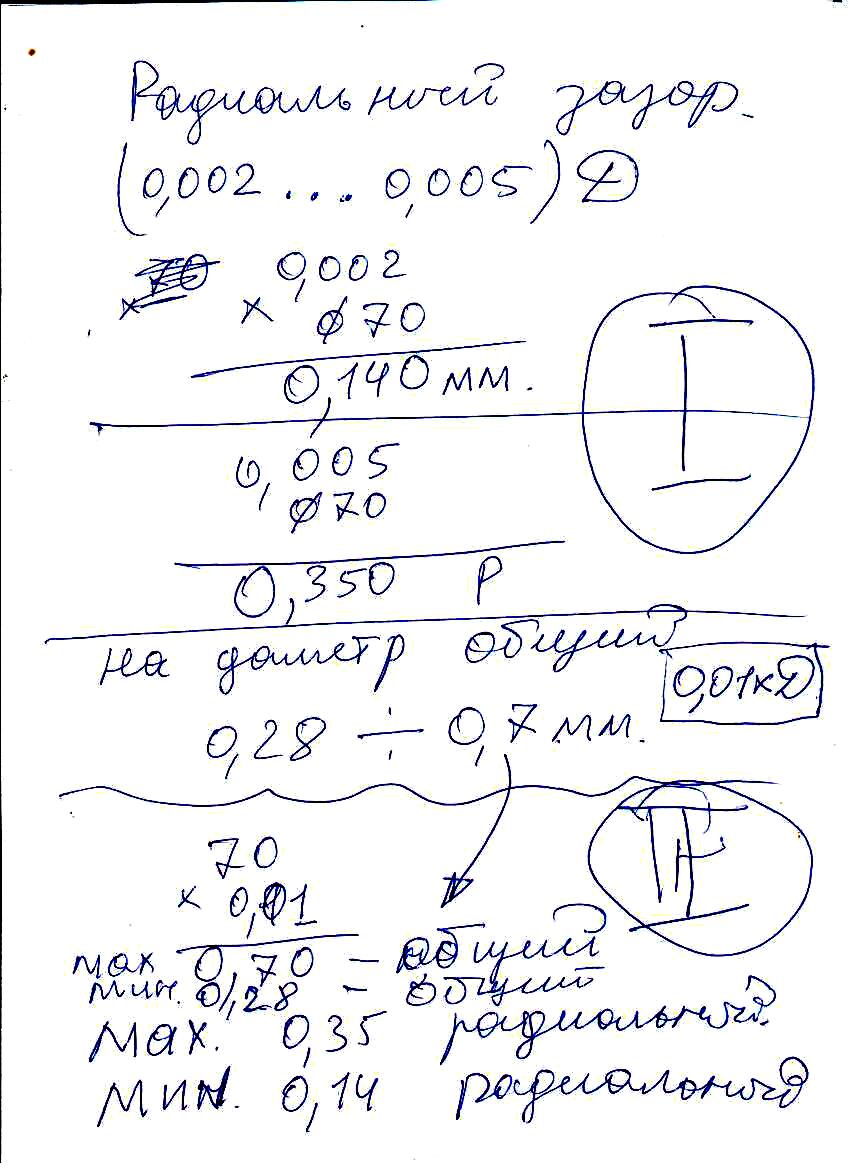 Радиальный зазор.
(0,002 ... 0,005) D
70 0,002
× × ⌀70
0,140 мм.
I
0,005
⌀70
0,350 Р
на даметр общий
0,01кD
0,28 ÷ 0,7 мм.
II
70
× 0,01
мах 0,70 – общий
мин. 0,28 – общий
мах. 0,35 радиальный.
мин. 0,14 радиальный